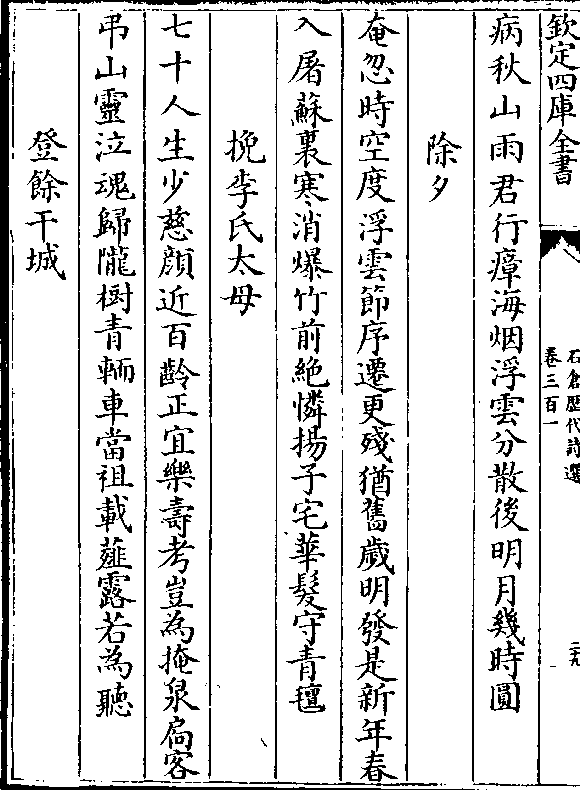 欽定四庫全書
石倉歷代詩選
卷三百一
二九
病秋山雨君行瘴海烟浮雲分散後明月幾時圓
除夕
奄忽時空度浮雲節序遷更殘猶舊歲明發是新年春
入屠蘇裏寒消爆竹前絶憐揚子宅華髮守青氊
挽李氏太母
七十人生少慈顔近百齡正宜樂壽考豈為掩泉扃客
弔山靈泣魂歸隴樹青輀車當祖載薤露若為聽
登餘干城